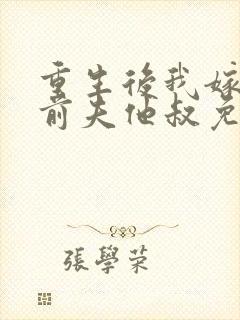 重生後我嫁
前夫他叔免
張學荣